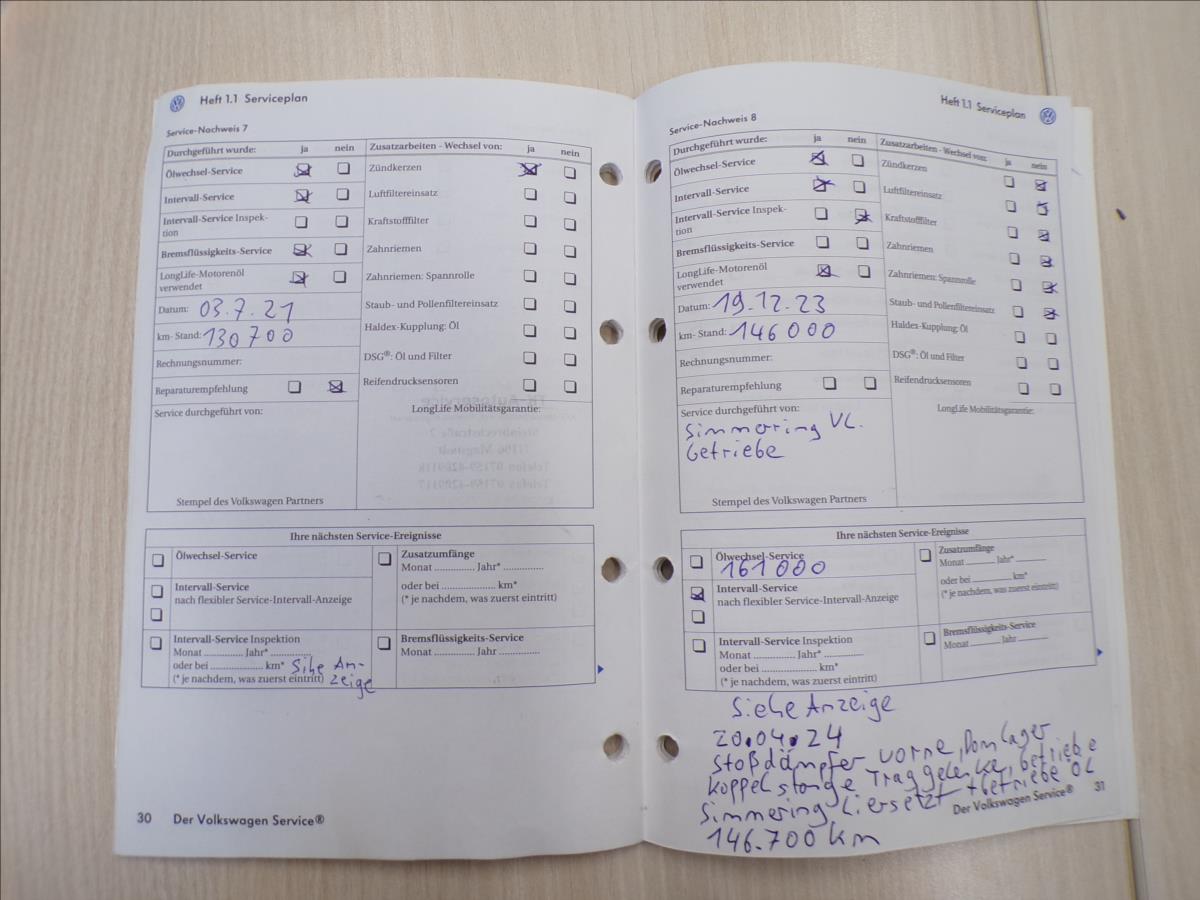 Heft 1.1 Serviceplan
Service-Nachweis 7
Durchgeführt wurde: ja nein
Ölwechsel-Service
Intervall-Service
Intervall-Service Inspek-
tion
Bremsflüssigkeits-Service
LongLife-Motorenöl
verwendet
Datum: 03.7.21
km- Stand: 130700
Rechnungsnummer:
Reparaturempfehlung
Service durchgeführt von:
Stempel des Volkswagen Partners
Zusatzarbeiten - Wechsel von: ja nein
Zündkerzen
Luftfiltereinsatz
Kraftstofffilter
Zahnriemen
Zahnriemen: Spannrolle
Staub- und Pollenfiltereinsatz
Haldex-Kupplung: Öl
DSG®: Öl und Filter
Reifendrucksensoren
LongLife Mobilitätsgarantie:
Ihre nächsten Service-Ereignisse
Ölwechsel-Service
Intervall-Service
nach flexibler Service-Intervall-Anzeige
Intervall-Service Inspektion
Monat .............. Jahr* ..............
oder bei .................. km* Sihe An-
(* je nachdem, was zuerst eintritt) zeige
Zusatzumfänge
Monat .............. Jahr* ..............
oder bei .................. km*
(* je nachdem, was zuerst eintritt)
Bremsflüssigkeits-Service
Monat .............. Jahr ..............
30 Der Volkswagen Service®
Heft 1.1 Serviceplan
Service-Nachweis 8
Durchgeführt wurde: ja nein
Ölwechsel-Service
Intervall-Service
Intervall-Service Inspek-
tion
Bremsflüssigkeits-Service
LongLife-Motorenöl
verwendet
Datum: 19.12.23
km- Stand: 146000
Rechnungsnummer:
Reparaturempfehlung
Service durchgeführt von:
Simmering VL.
Getriebe
Stempel des Volkswagen Partners
Zusatzarbeiten - Wechsel von: ja nein
Zündkerzen
Luftfiltereinsatz
Kraftstofffilter
Zahnriemen
Zahnriemen: Spannrolle
Staub- und Pollenfiltereinsatz
Haldex-Kupplung: Öl
DSG®: Öl und Filter
Reifendrucksensoren
LongLife Mobilitätsgarantie:
Ihre nächsten Service-Ereignisse
Ölwechsel-Service
161000
Intervall-Service
nach flexibler Service-Intervall-Anzeige
Intervall-Service Inspektion
Monat .............. Jahr* ..............
oder bei .................. km*
(* je nachdem, was zuerst eintritt)
Zusatzumfänge
Monat .............. Jahr* ..............
oder bei .................. km*
(* je nachdem, was zuerst eintritt)
Bremsflüssigkeits-Service
Monat .............. Jahr ..............
Siehe Anzeige
20.04.24
Stoßdämpfer vorne, Domlager
Koppelstange Traggelenke, Getriebe
Simmering L ersetzt + Getriebe Öl
146.700 km
Der Volkswagen Service® 31